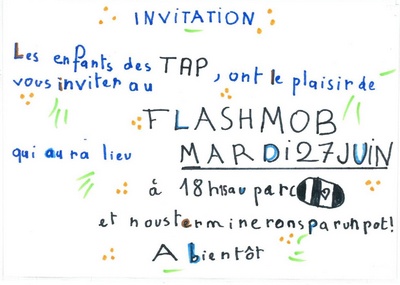 INVITATION
Les enfants des TAP, ont le plaisir de
vous inviter au
FLASHMOB
qui aura lieu MARDi 27 JUiN
à 18h15 au parc
et nous terminerons par un pot!
A bientôt